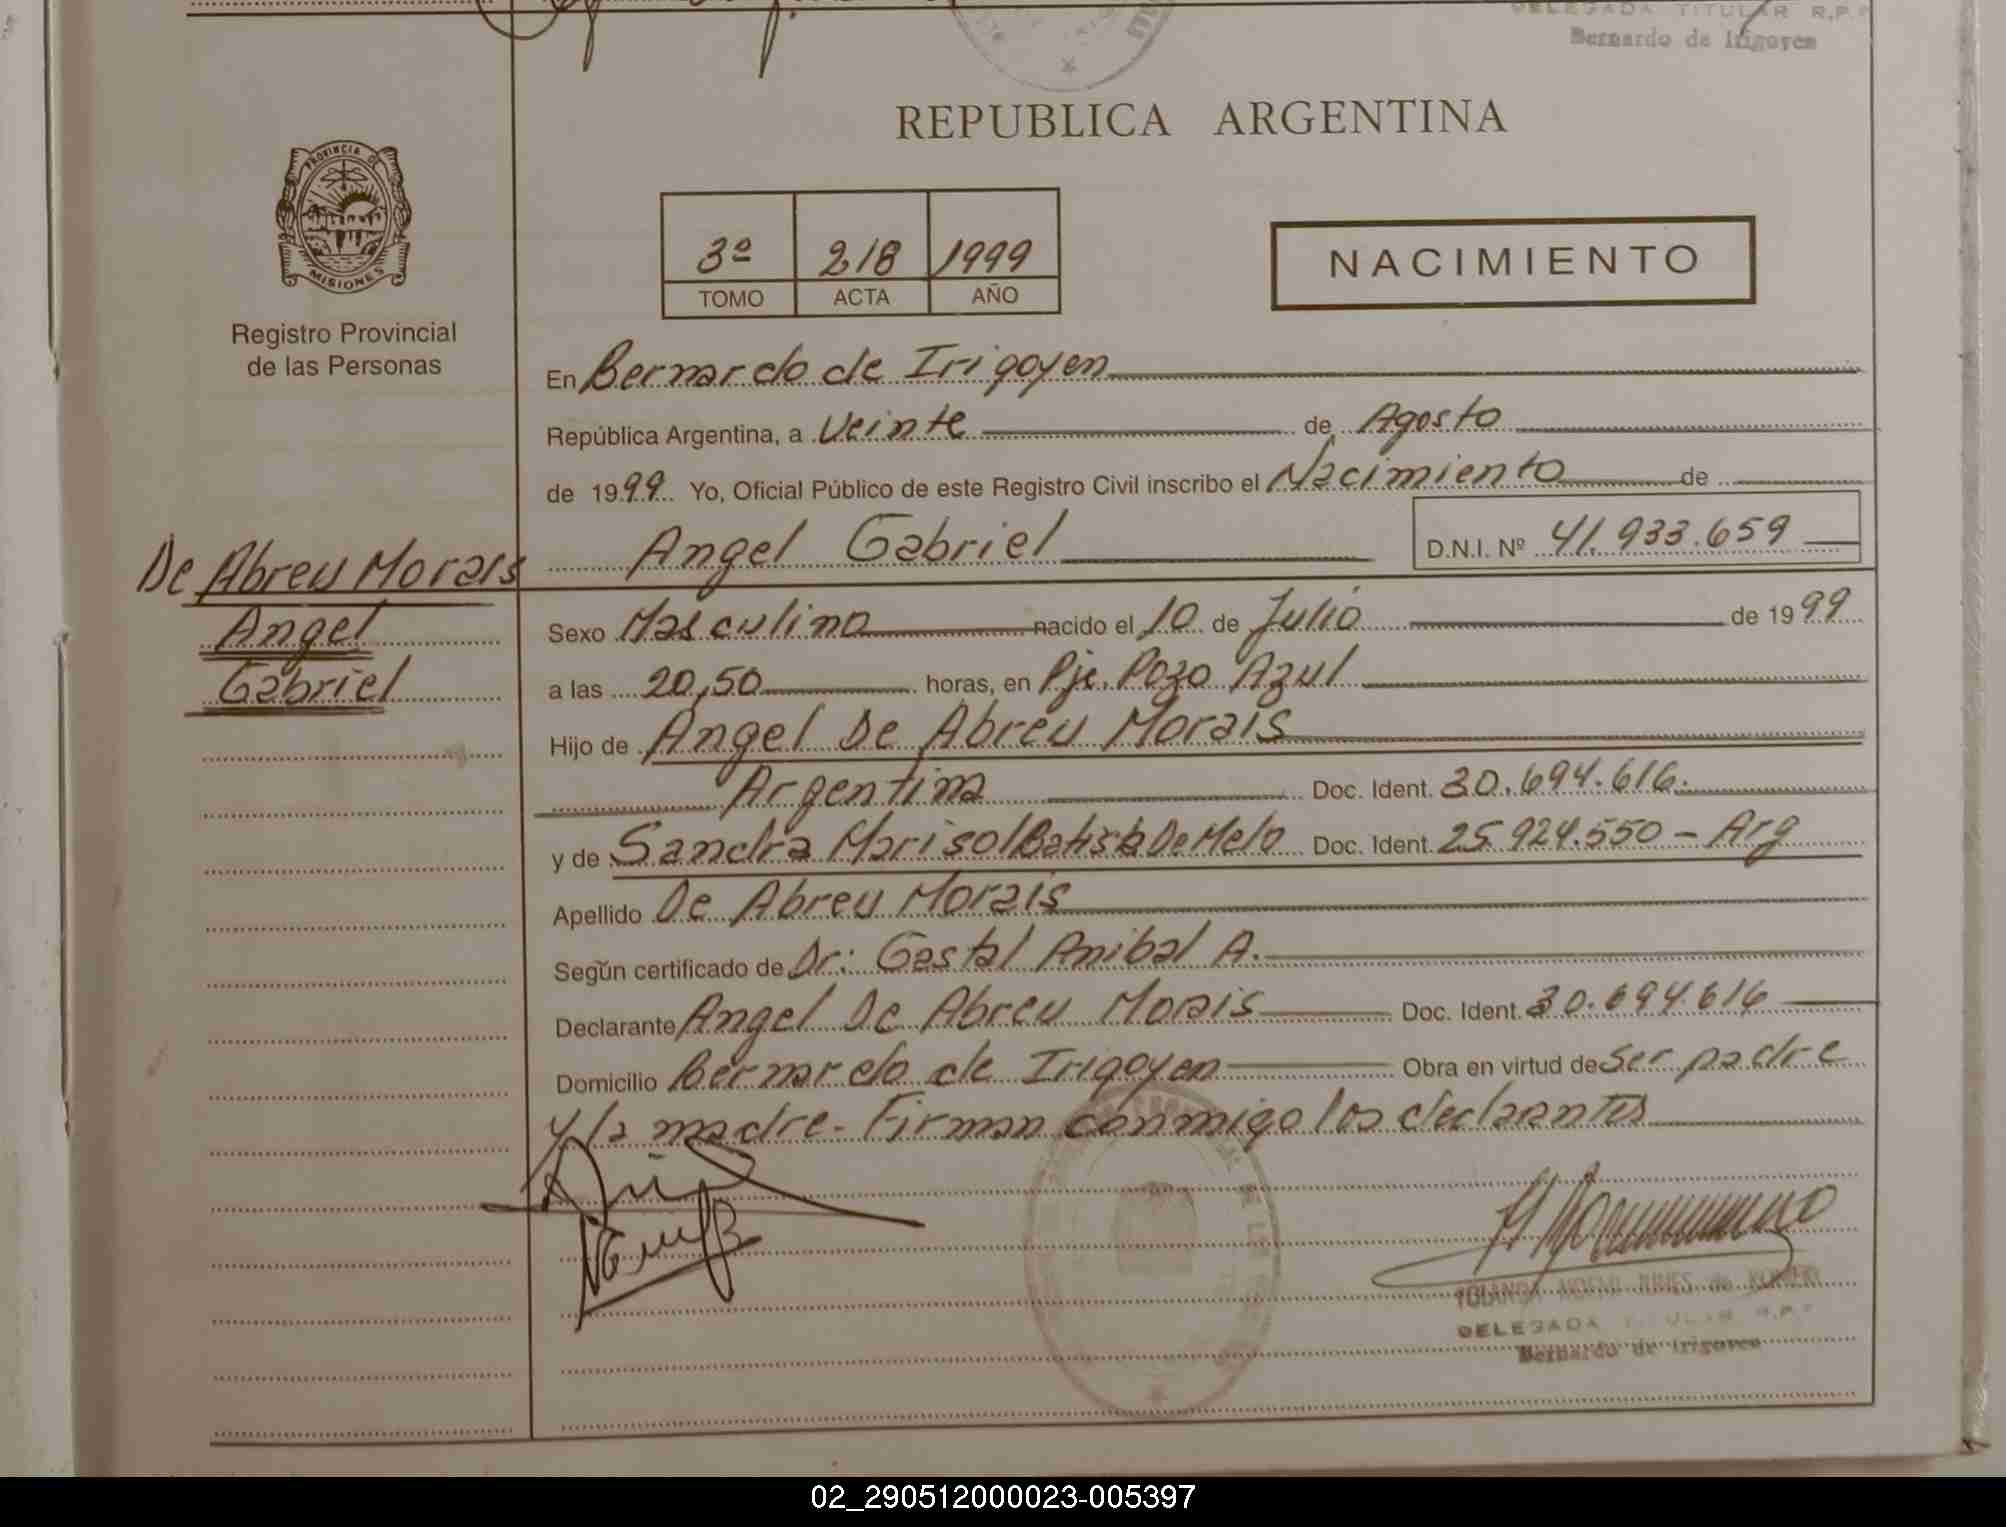 DELEGADA TITULAR R.P.P
Bernardo de Irigoyen
REPUBLICA ARGENTINA
PROVINCIA DE
MISIONES
Registro Provincial
de las Personas
3º 218 1999
TOMO ACTA AÑO
NACIMIENTO
En Bernardo de Irigoyen
República Argentina, a Veinte de Agosto
de 1999 Yo, Oficial Público de este Registro Civil inscribo el Nacimiento de
Angel Gabriel D.N.I. Nº 41.933.659
De Abreu Morais
Angel
Gabriel
Sexo Masculino nacido el 10 de Julio de 1999
a las 20,50 horas, en Pje. Pozo Azul
Hijo de Angel De Abreu Morais
Argentina Doc. Ident. 30.694.616.
y de Sandra Marisol Batista De Melo Doc. Ident. 25.924.550 - Arg
Apellido De Abreu Morais
Según certificado de Dr: Gastal Anibal A.
Declarante Angel De Abreu Morais Doc. Ident. 30.694.616
Domicilio Bernardo de Irigoyen Obra en virtud de Ser padre
y la madre. Firman conmigo los declarantes
DELEGADA TITULAR R.P.P
Bernardo de Irigoyen
02_290512000023-005397